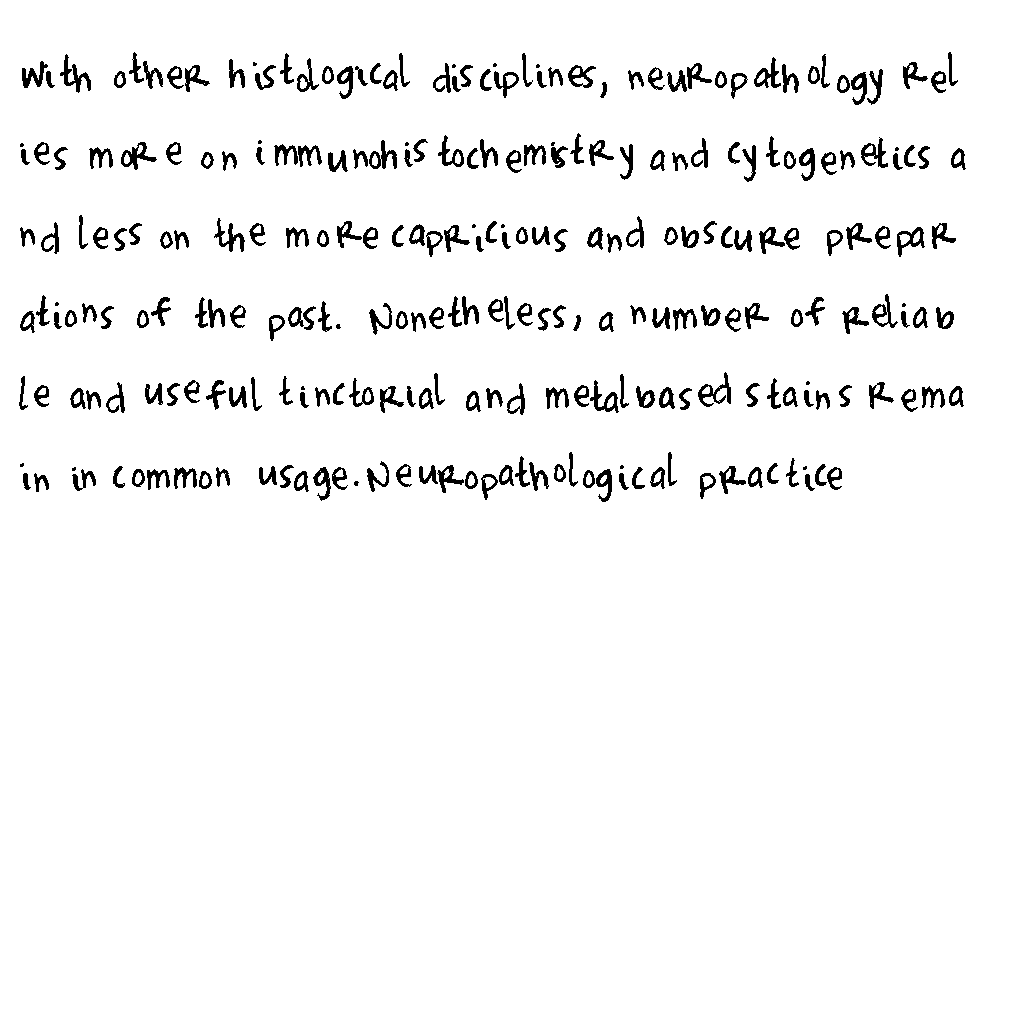 with other histological disciplines, neuropathology rel
ies more on immunohistochemistry and cytogenetics a
nd less on the more capricious and obscure prepar
ations of the past. Nonetheless, a number of reliab
le and useful tinctorial and metalbased stains rema
in in common usage.Neuropathological practice